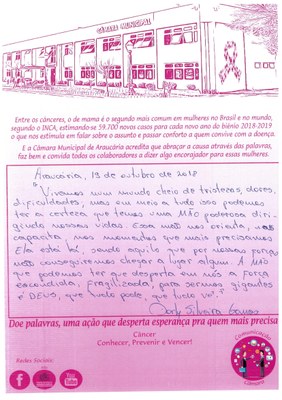 CÂMARA MUNICIPAL
Entre os cânceres, o de mama é o segundo mais comum em mulheres no Brasil e no mundo,
segundo o INCA, estimando-se 59.700 novos casos para cada novo ano do biênio 2018-2019
o que nos estimula em falar sobre o assunto e passar conforto a quem convive com a doença.
E a Câmara Municipal de Araucária acredita que abraçar a causa através das palavras,
faz bem e convida todos os colaboradores a dizer algo encorajador para essas mulheres.
Araucária, 19 de outubro de 2018
"Vivemos num mundo cheio de tristezas, dores,
dificuldades, mas em meio a tudo isso podemos
ter a certeza que temos uma MÃO poderosa diri-
gindo nossas vidas. Essa mão nos orienta, nos
capacita nos momentos que mais precisamos
Ela está lá, sendo aquilo que por nossas forças
não conseguiremos chegar a lugar algum. A MÃO
que podemos ter que desperta em nós a força
escondida, fragilizada, para sermos gigantes
é DEUS, que tudo pode, que tudo vê."
Silveira
Doe palavras, uma ação que desperta esperança pra quem mais precisa
Câncer
Conhecer, Prevenir e Vencer!
Redes Sociais
f
You Tube
Comunicação
Câmara